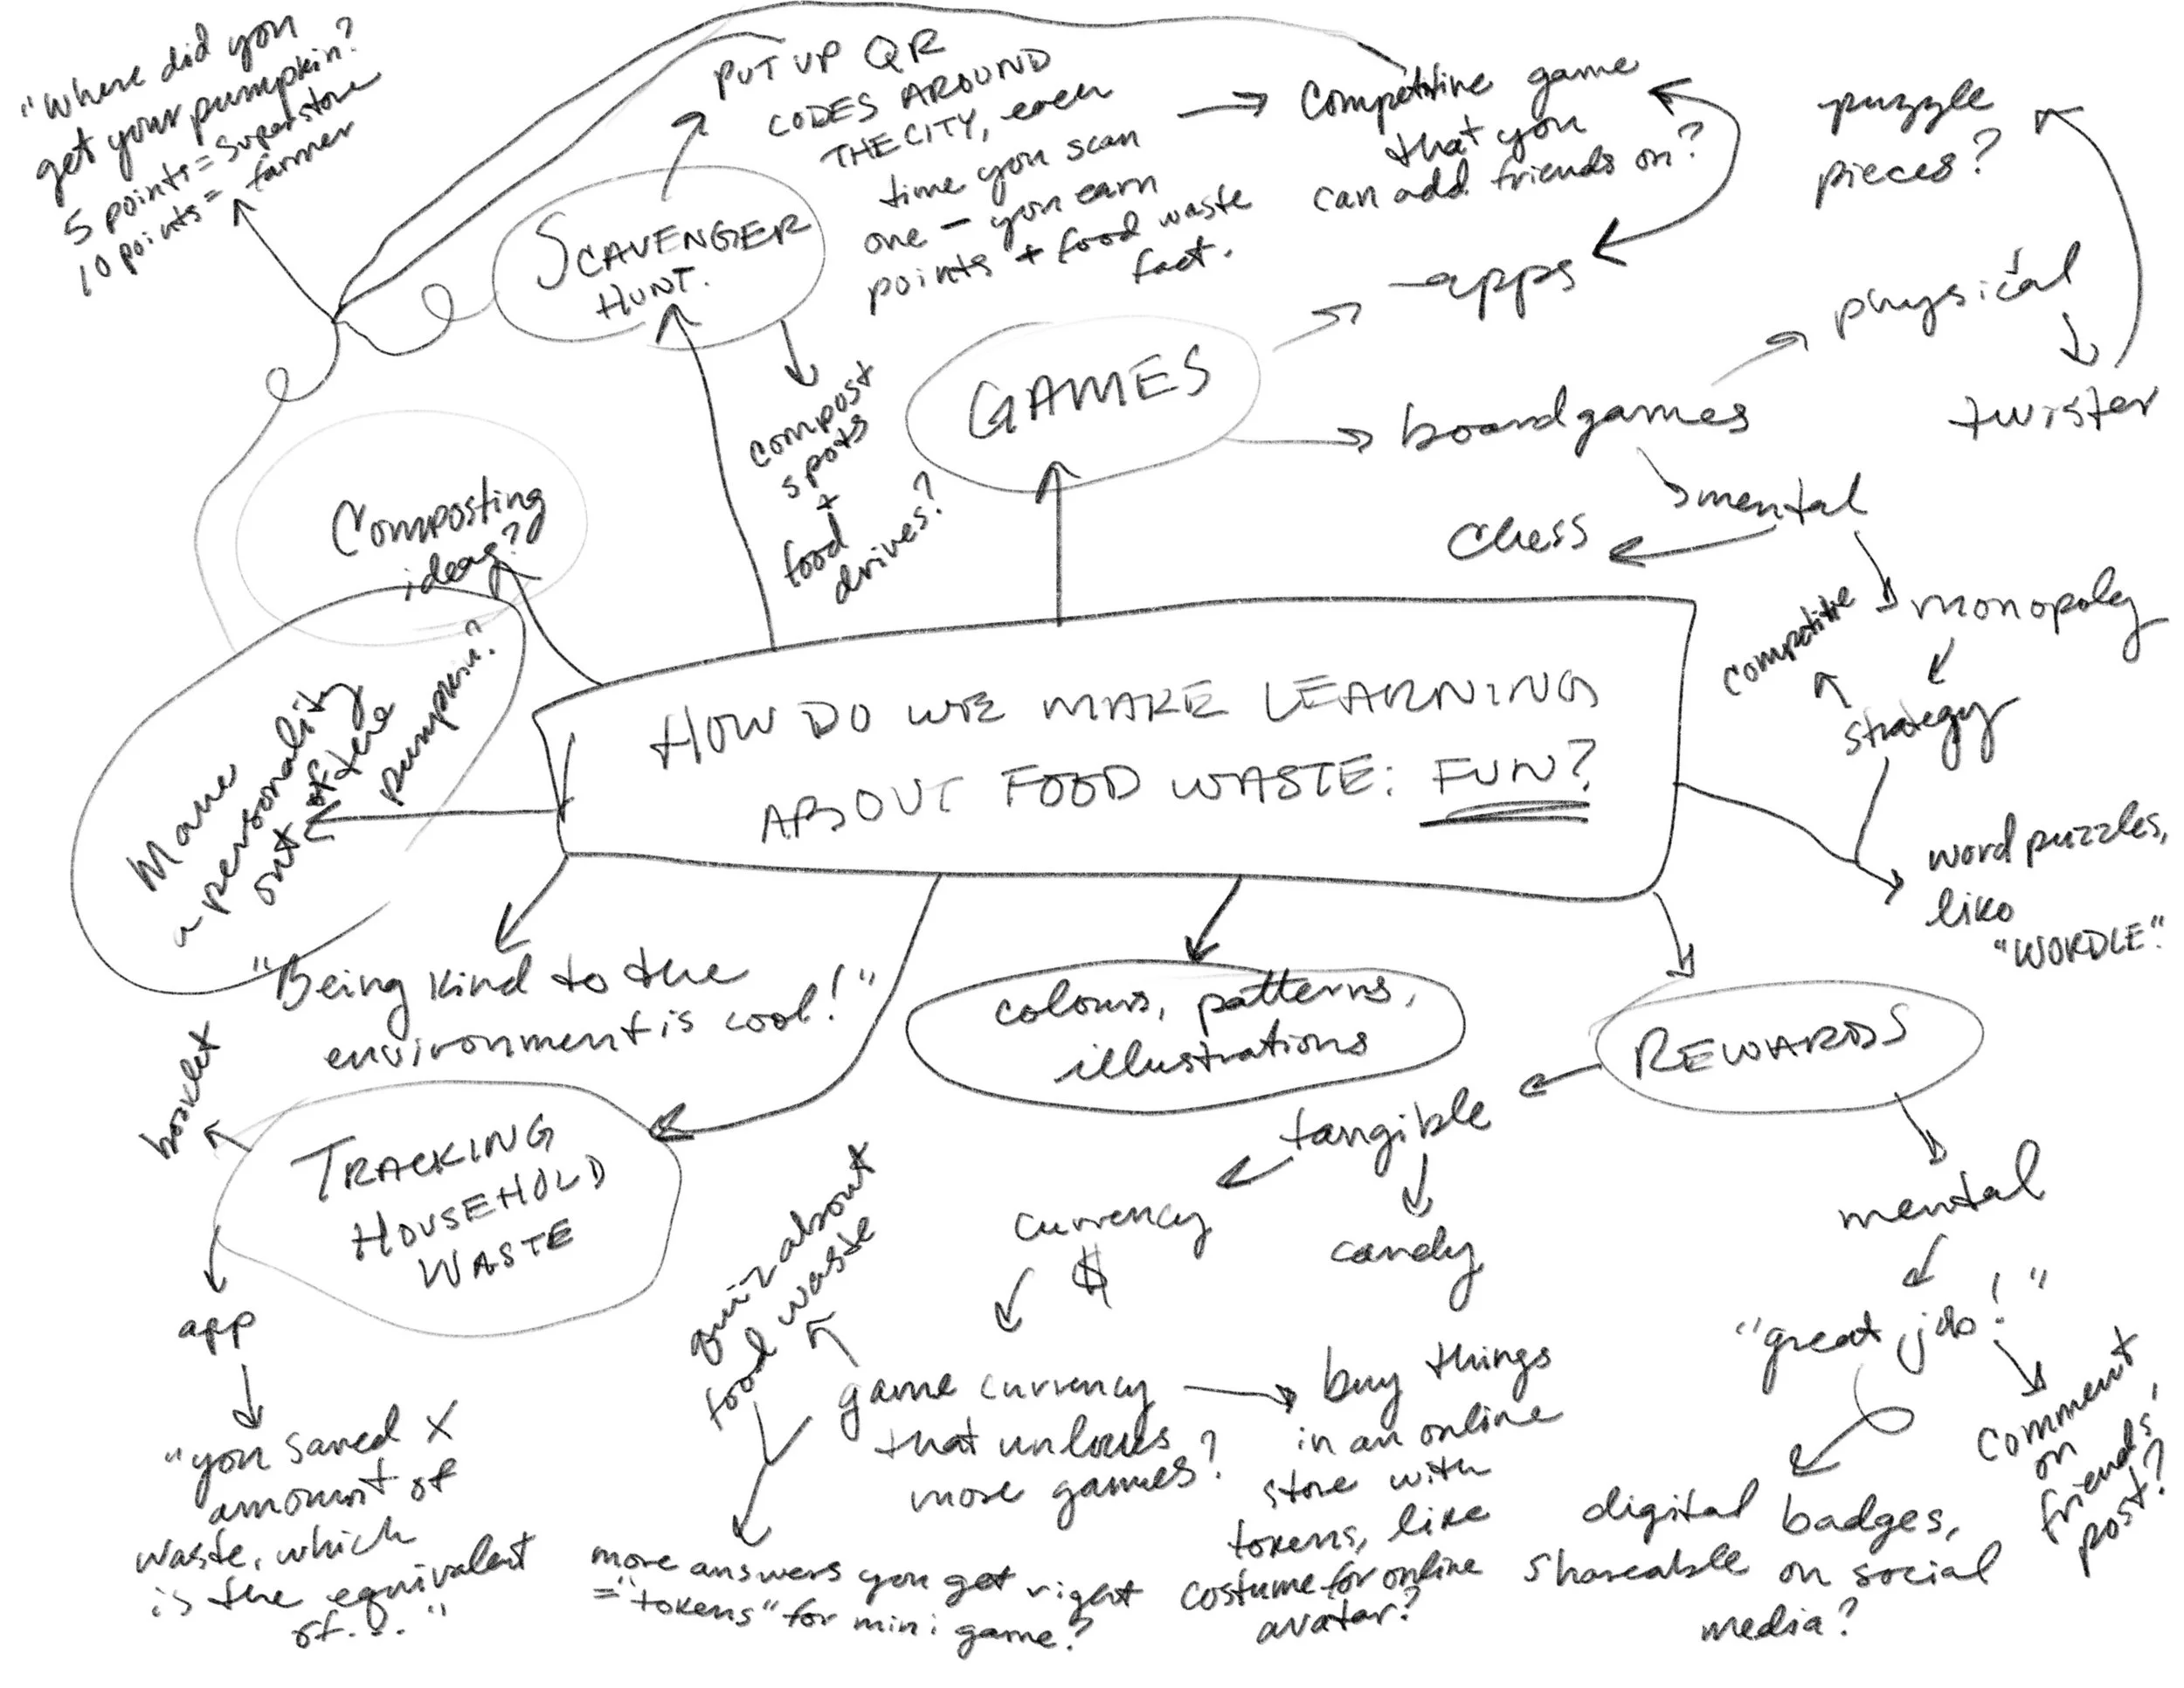 "Where did you
get your pumpkin?
5 points = superstore
10 points = farmer
PUT UP QR
CODES AROUND
THE CITY, each
time you scan
one - you earn
points + food waste
fact.
Competitive game
that you
can add friends on?
puzzle
pieces?
SCAVENGER
HUNT.
compost
spots
+
food
drives?
GAMES
apps
physical
twister
boardgames
mental
chess
monopoly
competitive
strategy
word puzzles,
like
"WORDLE".
Composting
ideas?
Make
a personality
out of the
pumpkin?
HOW DO WE MAKE LEARNING
ABOUT FOOD WASTE: FUN?
"Being kind to the
environment is cool!"
colours, patterns,
illustrations
REWARDS
tangible
currency
$
candy
mental
"great job!"
comment
on
friends'
post?
digital badges,
shareable on social
media?
booklet
TRACKING
HOUSEHOLD
WASTE
app
"you saved X
amount of
waste, which
is the equivalent
of..."
quiz about
food waste
game currency
that unlocks
more games?
buy things
in an online
store with
tokens, like
costume for online
avatar?
more answers you get right
= "tokens" for mini game?